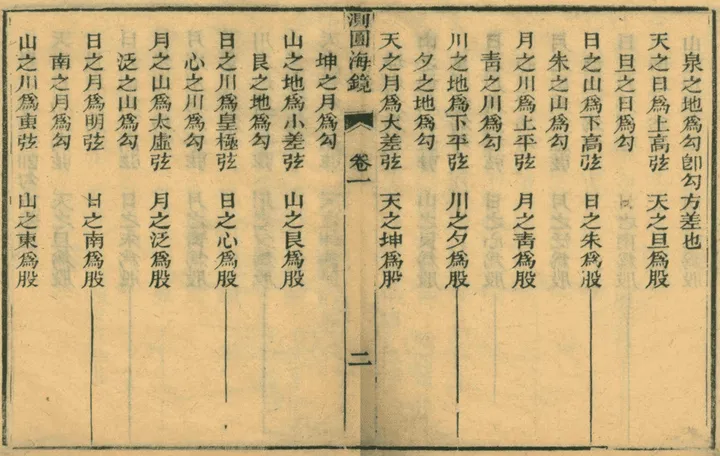 泉之地爲勾卽勾方差也
天之日爲上高弦　天之旦爲股
旦之日爲勾
日之山爲下高弦　日之朱爲股
朱之山爲勾
月之川爲上平弦　月之靑爲股
靑之川爲勾
川之地爲下平弦　川之夕爲股
夕之地爲勾
天之月爲大差弦　天之坤爲股
測圓海鏡　卷一　二
坤之月爲勾
山之地爲小差弦　山之艮爲股
艮之地爲勾
日之川爲皇極弦　日之心爲股
心之川爲勾
月之山爲太虛弦　月之泛爲股
泛之山爲勾
日之月爲明弦　日之南爲股
南之月爲勾
山之川爲叀弦　山之東爲股